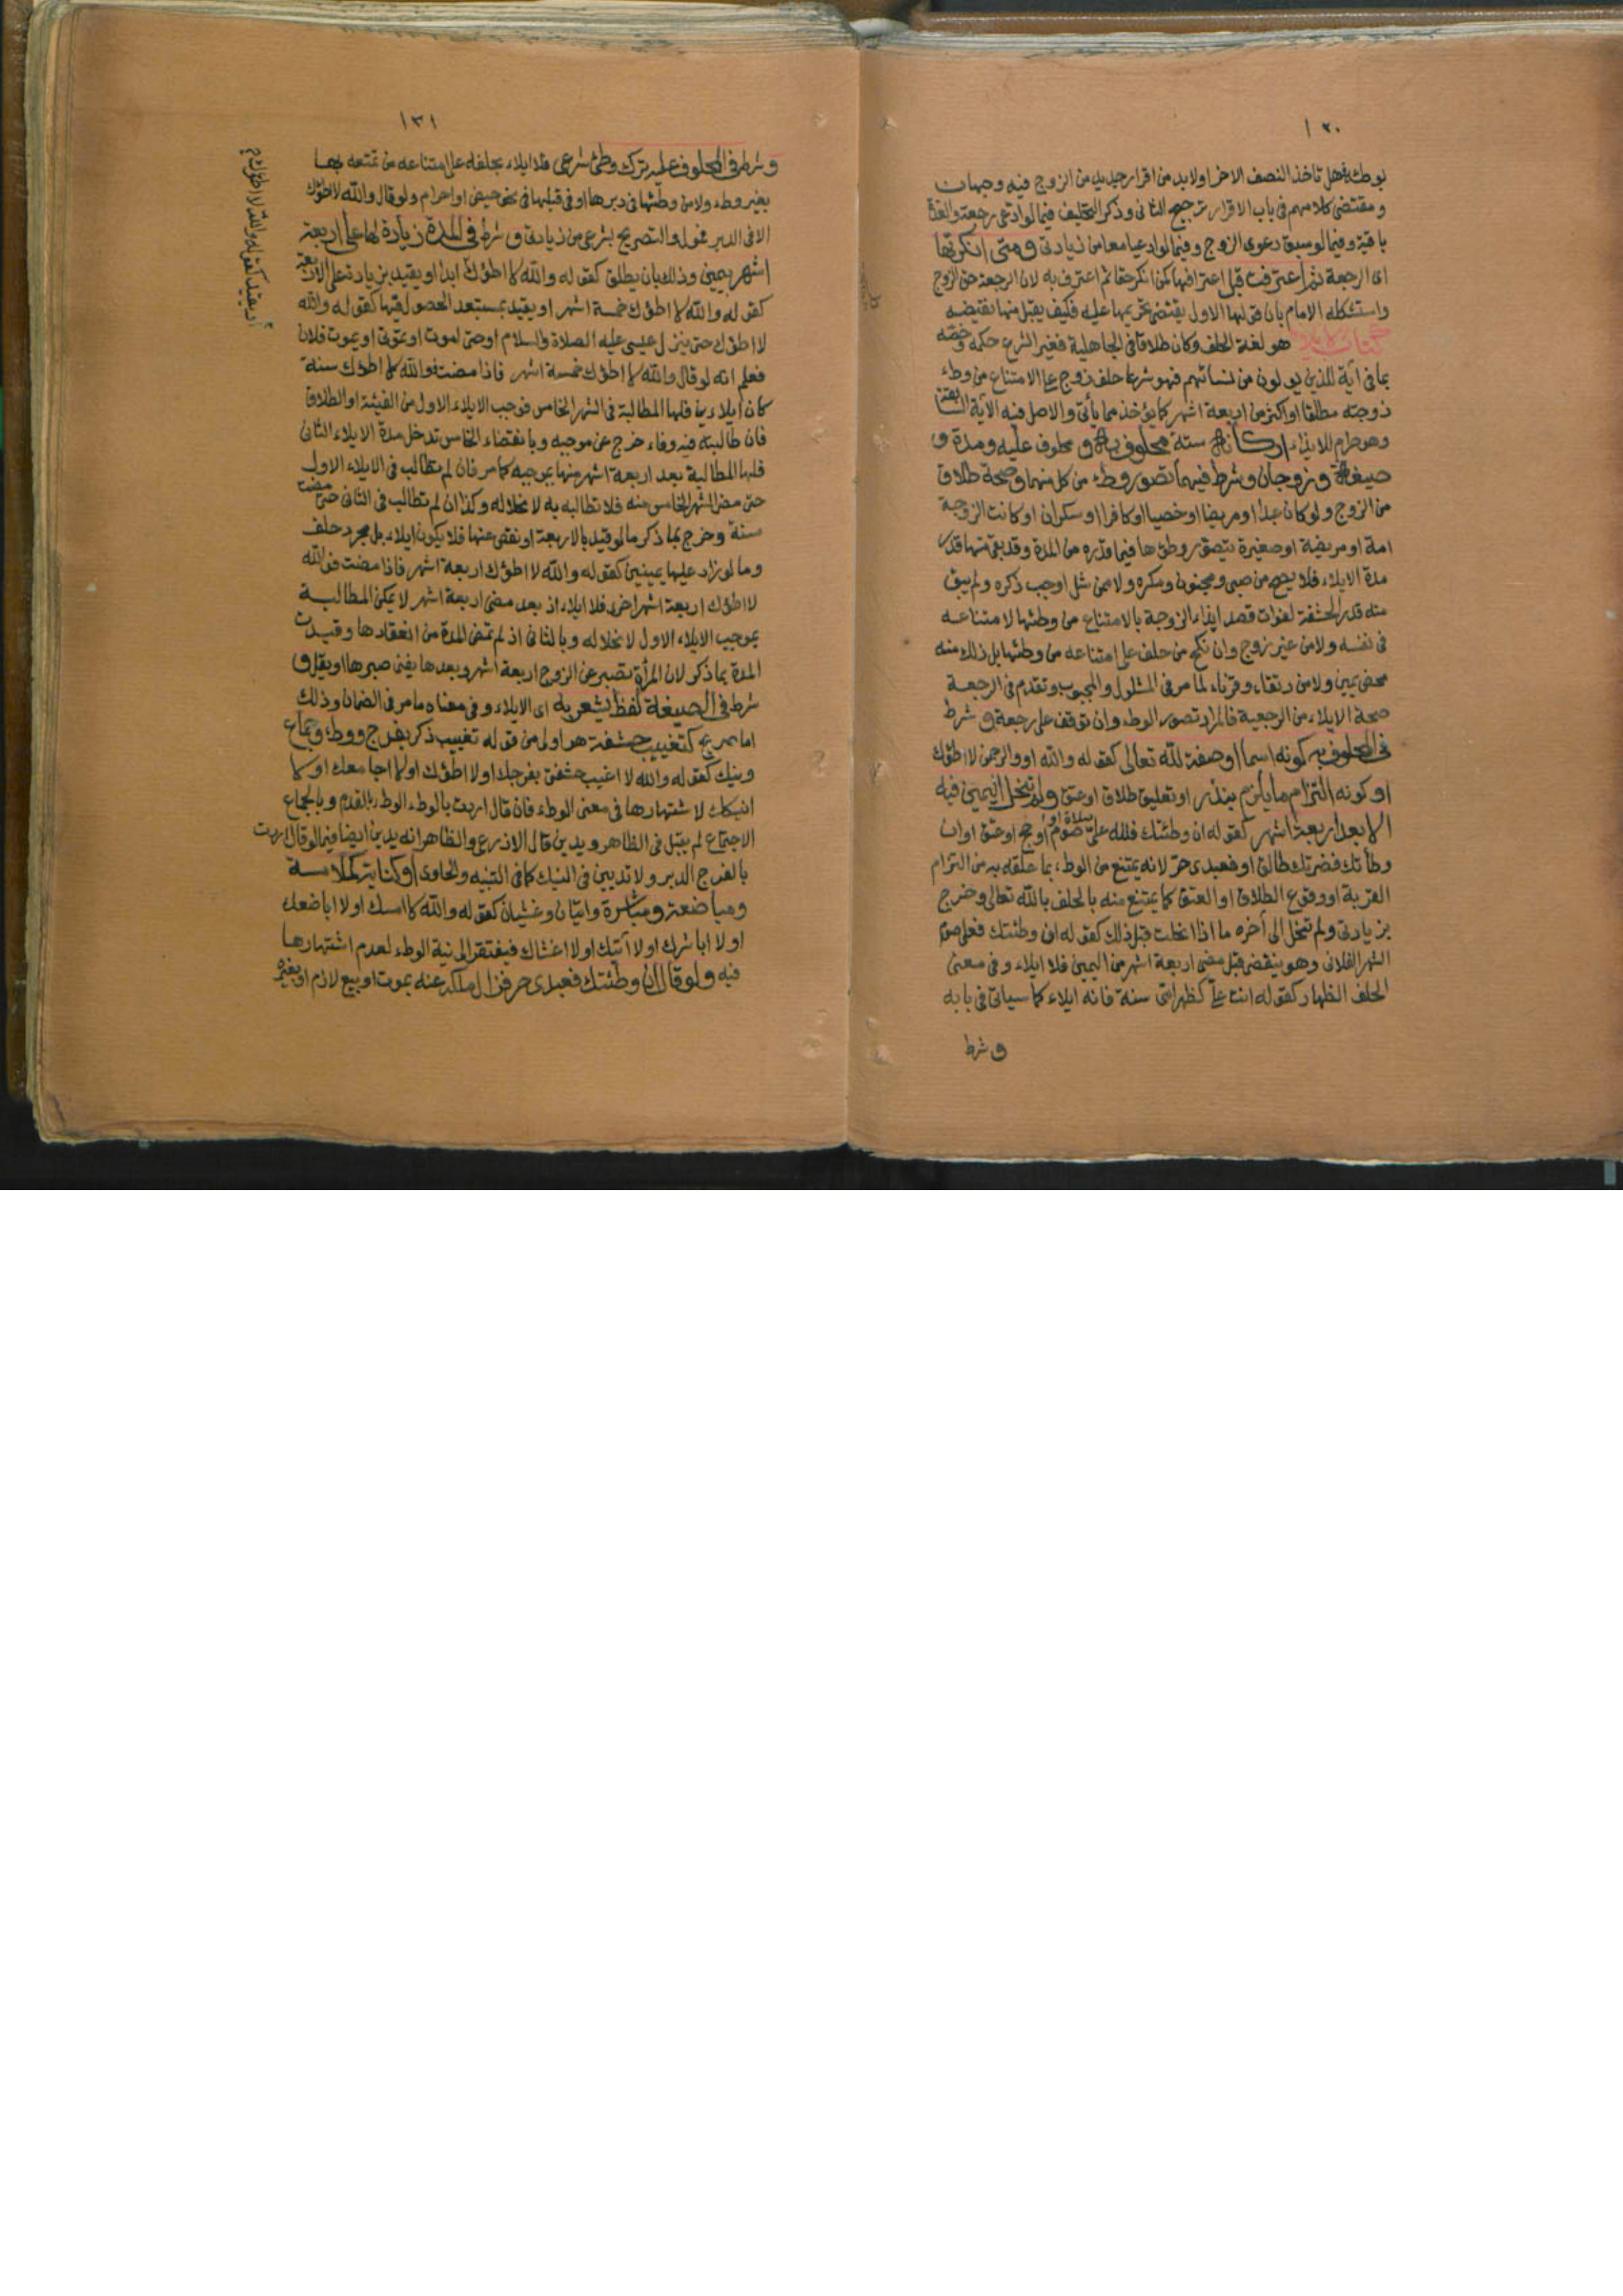 ١٣٠
بوطئه فهل تاخذ النصف الاخر اولا بد من اقرار جديد من الزوج فيه وجهان
ومقتضى كلامهم فى باب الاقرار ترجيح الثانى وذكر التحليف فيما لو ادعى رجعة والعدة
باقية وفيما لو سبق دعوى الزوج وفيما لو ادعيا معا من زيادتى ومتى انكرتها
اى الرجعة ثم اعترفت قبل اعترافها كمن انكر حقا ثم اعترف به لان الرجعة حق الزوج
واستشكله الامام بان قولها الاول يقتضى تحريمها عليه فكيف يقبل منها نقيضه
كتاب الايلاء هو لغة الحلف وكان طلاقا فى الجاهلية فغير الشرع حكمه وخصه
بما فى آية للذين يولون من نسائهم فهو شرعا حلف زوج على الامتناع من وطء
زوجته مطلقا او اكثر من اربعة اشهر كما يؤخذ مما يأتى والاصل فيه الآية السابقة
وهو حرام للايذاء اركانه ستة محلوف به ومحلوف عليه ومدة و
صيغة وزوجان وشرط فيهما تصور وطء من كل منهما وصحة طلاق
من الزوج ولو كان عبدا او مريضا او خصيا او كافرا او سكران او كانت الزوجة
امة او مريضة او صغيرة يتصور وطؤها فيما قدره من المدة وقد بقى منها قدر
مدة الايلاء فلا يصح من صبى ومجنون ومكره ولا ممن شل او جب ذكره ولم يبق
منه قدر الحشفة لفوات قصد ايذاء الزوجة بالامتناع من وطئها لامتناعه
فى نفسه ولا من غير زوج وان نكح من حلف على امتناعه من وطئها بل ذلك منه
محض يمين ولا من رتقاء وقرناء لما مر فى المشلول والمجبوب وتقدم فى الرجعة
صحة الايلاء من الرجعية فالمراد تصور الوطء وان توقف على رجعة وشرط
فى المحلوف به كونه اسما او صفة لله تعالى كقوله والله او والرحمن لا اطؤك
او كونه التزام ما يلزم بنذر او تعليق طلاق او عتق ولم تنحل اليمين فيه
الا بعد اربعة اشهر كقوله ان وطئتك فلله على صلاة او صوم او حج او عتق او ان
وطأتك فضرتك طالق او فعبدى حر لانه يمتنع من الوطء بما علقه به من التزام
القربة او وقوع الطلاق او العتق كما يمتنع منه بالحلف بالله تعالى وخرج
بزيادتى ولم تنحل الى آخره ما اذا انحلت قبل ذلك كقوله ان وطئتك فعلى صوم
الشهر الفلانى وهو ينقضى قبل مضى اربعة اشهر من اليمين فلا ايلاء وفى معنى
الحلف الظهار كقوله انت على كظهر امى سنة فانه ايلاء كما سياتى فى بابه
وشرط
١٣١
وشرط فى المحلوف عليه ترك وطئ شرعى فلا ايلاء بحلفه على امتناعه من تمتعه بها
بغير وطء ولا من وطئها فى دبرها او فى قبلها فى نحو حيض او احرام ولو قال والله لا اطؤك
الا فى الدبر فمول والتصريح بشرعى من زيادتى وشرط فى المدة زيادة لها على اربعة
اشهر بيمين وذلك بان يطلق كقوله والله لا اطؤك ابدا او يقيد بزيادة على الاربعة
كقوله والله لا اطؤك خمسة اشهر او يقيد بمستبعد الحصول فيها كقوله والله
لا اطؤك حتى ينزل عيسى عليه الصلاة والسلام او حتى اموت او تموتى او يموت فلان
فعلم انه لو قال والله لا اطؤك خمسة اشهر فاذا مضت فوالله لا اطؤك سنة
كان ايلاءين فلها المطالبة فى الشهر الخامس فوجب الايلاء الاول من الفيئة او الطلاق
فان طالبته فيه وفاء خرج عن موجبه وبانقضاء الخامس تدخل مدة الايلاء الثانى
فلها المطالبة بعد اربعة اشهر منها بموجبه كما مر فان لم تطالب فى الايلاء الاول
حتى مضى الشهر الخامس منه فلا تطالبه به لانحلاله وكذا ان لم تطالب فى الثانى حتى مضت
سنة وخرج بما ذكر ما لو قيد بالاربعة او نقص عنها فلا يكون ايلاء بل مجرد حلف
وما لو زاد عليها بيمينين كقوله والله لا اطؤك اربعة اشهر فاذا مضت فوالله
لا اطؤك اربعة اشهر اخرى فلا ايلاء اذ بعد مضى اربعة اشهر لا يمكن المطالبة
بموجب الايلاء الاول لانحلاله وبالثانى اذ لم تمض المدة من انعقادها وقيدت
المدة بما ذكر لان المرأة تصبر عن الزوج اربعة اشهر وبعدها يفنى صبرها او يقل و
شرط فى الصيغة لفظ يشعر به اى الايلاء وفى معناه ما مر فى الضمان وذلك
اما صريح كتغييب حشفة هو اولى من قوله تغييب ذكر بفرج ووطء وجماع
ونيك كقوله والله لا اغيب حشفتى بفرجك او لا اطؤك او لا اجامعك او لا
انيكك لاشتهارها فى معنى الوطء فان قال اردت بالوطء الوطء بالقدم وبالجماع
الاجتماع لم يقبل فى الظاهر ويدين قال الاذرعى والظاهر انه يدين ايضا فيما لو قال اردت
بالفرج الدبر ولا تديين فى النيك كما فى التنبيه والحاوى او كناية كملامسة
ومباضعة ومباشرة واتيان وغشيان كقوله والله لا امسك او لا اباضعك
او لا اباشرك او لا آتيك او لا اغشاك فيفتقر الى نية الوطء لعدم اشتهارها
فيه ولو قال ان وطئتك فعبدى حر فزال ملكه عنه بموت او بيع لازم او بغيره
او يقيد كقوله والله لا اطؤك